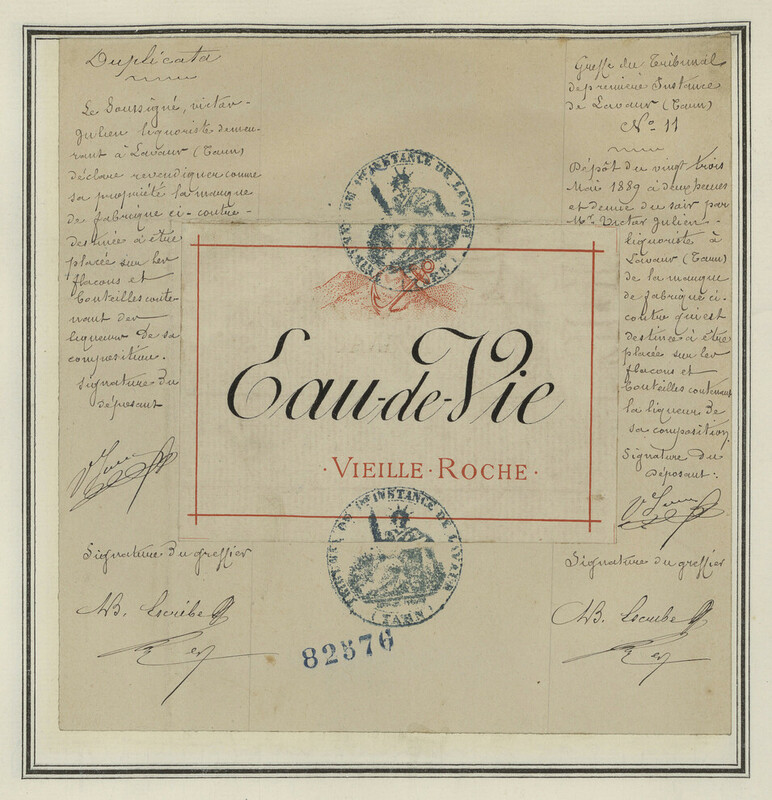 Duplicata
Le Soussigné, victor-
Julien liquoriste demeu-
rant à Lavaur (Tarn)
déclare revendiquer comme
sa propriété la marque
de fabrique ci-contre-
destinée à être
placée sur les
flacons et
bouteilles conte-
nant des
liqueurs de sa
composition.
Signature du
déposant
Signature du greffier
Greffe du Tribunal
de première Instance
de Lavaur (Tarn)
No 11
Dépôt du vingt trois
Mai 1889 à deux heures
et demie du soir par
Mr. Victor Julien-
liquoriste à
Lavaur (Tarn)
de la marque
de fabrique ci-
contre qui est
destinée à être
placée sur les
flacons et
bouteilles contenant
la liqueur de
sa composition.
Signature du
déposant:.
Signature du greffier
TRIBUNAL DE 1RE INSTANCE DE LAVAUR
(TARN)
Eau-de-Vie
·VIEILLE·ROCHE·
TRIBUNAL DE 1RE INSTANCE DE LAVAUR
(TARN)
82576